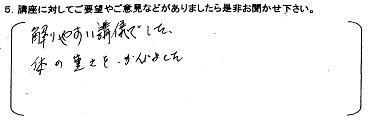 5. 講座に対してご要望やご意見などがありましたら是非お聞かせ下さい。
解りやすい講儀でした、
体の重さを、かんじました